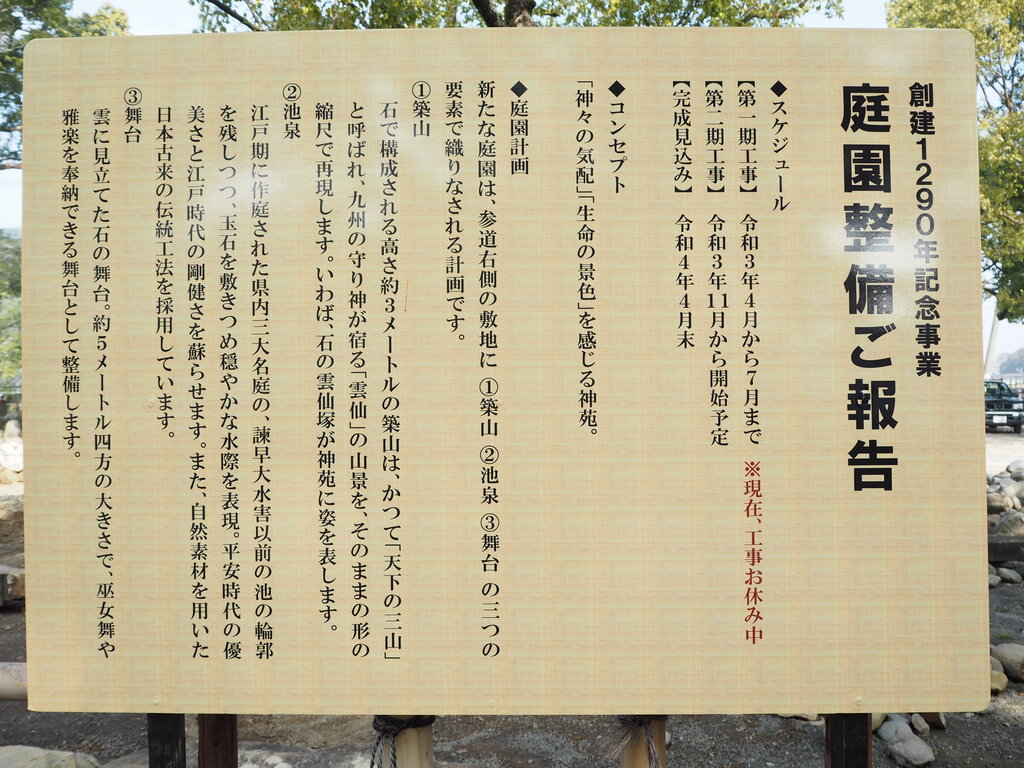 創建1290年記念事業
庭園整備ご報告
◆スケジュール
【第一期工事】 令和3年4月から7月まで ※現在、工事お休み中
【第二期工事】 令和3年11月から開始予定
【完成見込み】 令和4年4月末
◆コンセプト
「神々の気配」「生命の景色」を感じる神苑。
◆庭園計画
新たな庭園は、参道右側の敷地に ①築山 ②池泉 ③舞台 の三つの
要素で織りなされる計画です。
①築山
石で構成される高さ約3メートルの築山は、かつて「天下の三山」
と呼ばれ、九州の守り神が宿る「雲仙」の山景を、そのままの形の
縮尺で再現します。いわば、石の雲仙塚が神苑に姿を表します。
②池泉
江戸期に作庭された県内三大名庭の、諫早大水害以前の池の輪郭
を残しつつ、玉石を敷きつめ穏やかな水際を表現。平安時代の優
美さと江戸時代の剛健さを蘇らせます。また、自然素材を用いた
日本古来の伝統工法を採用しています。
③舞台
雲に見立てた石の舞台。約5メートル四方の大きさで、巫女舞や
雅楽を奉納できる舞台として整備します。